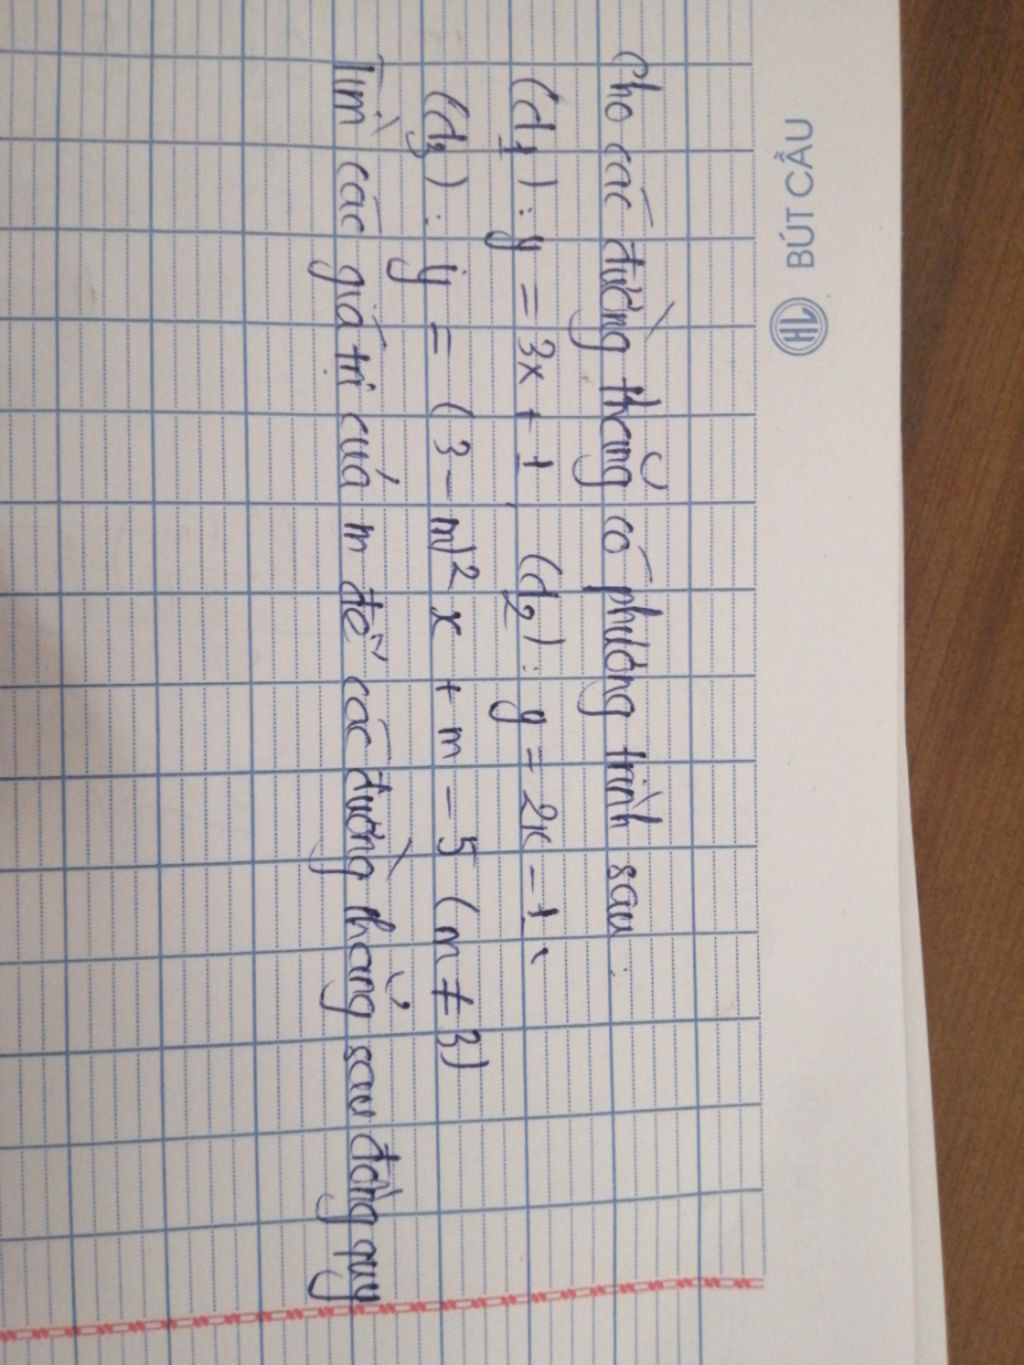 BÚT CẦU HL
Cho các đường thẳng có phương trình sau:
(d1): y = 3x + 1, (d2): y = 2x - 1,
(d3): y = (3 - m)² x + m - 5 (m ≠ 3)
Tìm các giá trị của m để các đường thẳng sau đồng quy